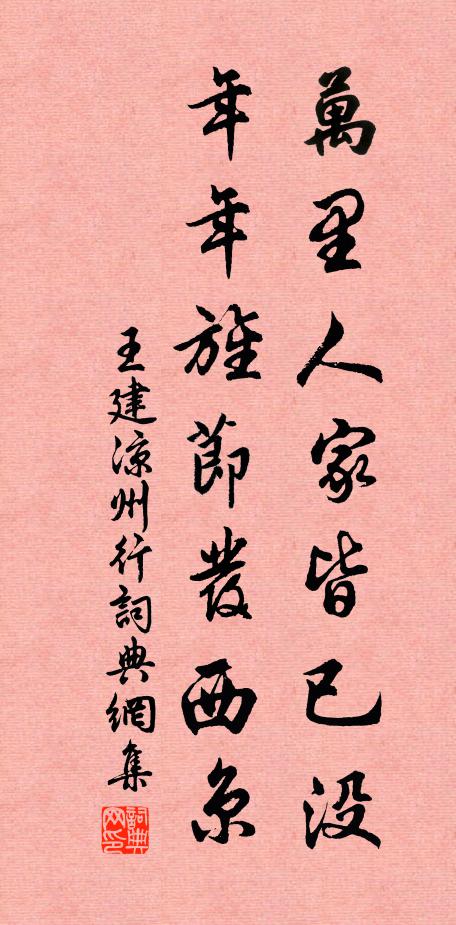 萬里人家皆已没
年年旌節發西京
王建凉州行詞典網集
詞典网印